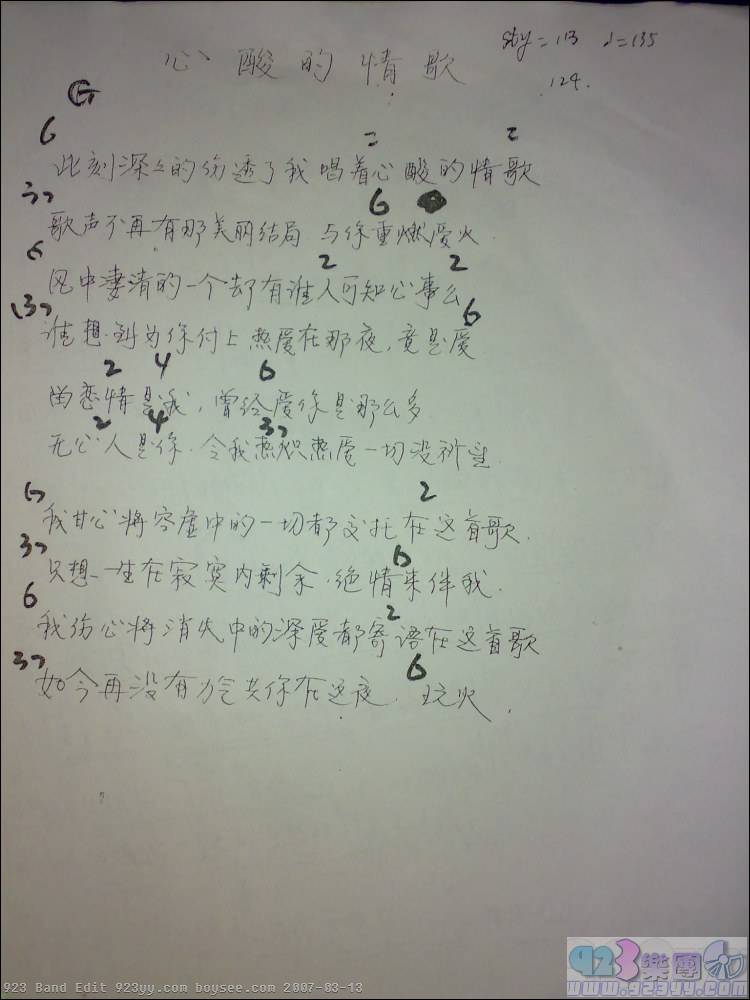 sty=113 ♩=135
心酸的情歌
124.
G
6 = =
此刻深深的伤透了我 唱着心酸的情歌
37 6
歌声不再有那美丽结局 与你重燃爱火
6 2 2
风中凄清的一个却有谁人可知心事么
(37 6
谁想到为你付上热爱在那夜,竟是爱
2 4 6
的恋情是我,曾经爱你是那么多
2 4 37
无心人是你.令我热炽热爱一切没祈望.
6 2
我甘心将空虚中的一切都交托在这首歌.
37 6
只想一生在寂寞内剩余.绝情来伴我.
6 2
我伤心将消失中的深爱都寄语在这首歌
37 6
如今再没有力气共你在这夜.玩火.
923 Band Edit 923yy.com boysee.com 2007-03-13
923樂團
www.923yy.com